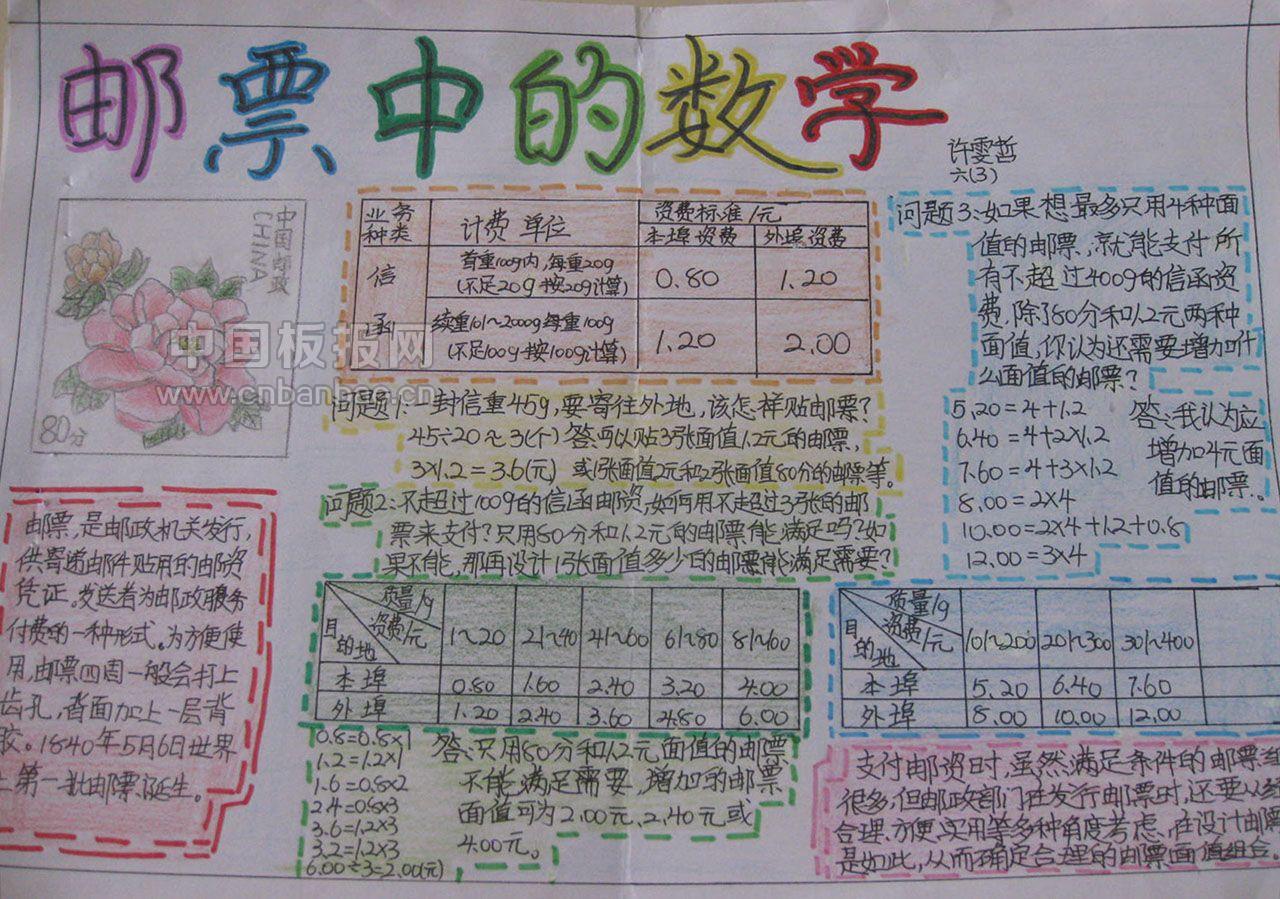 邮票中的数学
许雯哲
六(3)
中国邮政
CHINA
80分
中国板报网
www.cnbanbao.cn
业务种类 计费单位 资费标准/元
本埠资费 外埠资费
信函
首重100g内,每重20g
(不足20g按20g计算) 0.80 1.20
续重101~2000g每重100g
(不足100g按100g计算) 1.20 2.00
问题1:一封信重45g,要寄往外地,该怎样贴邮票?
45÷20≈3(个) 答:可以贴3张面值1.2元的邮票,
3×1.2=3.6(元) 或1张面值2元和2张面值80分的邮票等。
问题2:不超过100g的信函邮资,如何用不超过3张的邮
票来支付?只用80分和1.2元的邮票能满足吗?如
果不能,那再设计1张面值多少的邮票能满足需要?
质量/g
资费/元
目的地 1~20 21~40 41~60 61~80 81~600
本埠 0.80 1.60 2.40 3.20 4.00
外埠 1.20 2.40 3.60 4.80 6.00
0.8=0.8×1
1.2=1.2×1
1.6=0.8×2
2.4=0.8×3
3.6=1.2×3
3.2=1.2×3
6.00÷3=2.00(元)
答:只用80分和1.2元面值的邮票
不能满足需要,增加的邮票
面值可为2.00元、2.40元或
4.00元。
问题3:如果想最多只用4种面
值的邮票,就能支付所
有不超过400g的信函资
费,除了80分和1.2元两种
面值,你认为还需要增加什
么面值的邮票?
5.20=4+1.2
6.40=4+2×1.2
7.60=4+3×1.2
8.00=2×4
10.00=2×4+1.2+0.8
12.00=3×4
答:我认为应
增加4元面
值的邮票.
质量/g
资费/元
目的地 101~200 201~300 301~400
本埠 5.20 6.40 7.60
外埠 8.00 10.00 12.00
邮票,是邮政机关发行,
供寄递邮件贴用的邮资
凭证。发送者为邮政服务
付费的一种形式。为方便使
用,邮票四周一般会打上
齿孔,背面加上一层背
胶。1840年5月6日世界
上第一批邮票诞生。
支付邮资时,虽然满足条件的邮票组
很多,但邮政部门在发行邮票时,还要从经
合理、方便、实用等多种角度考虑,在设计邮票
是如此,从而确定合理的邮票面值组合。